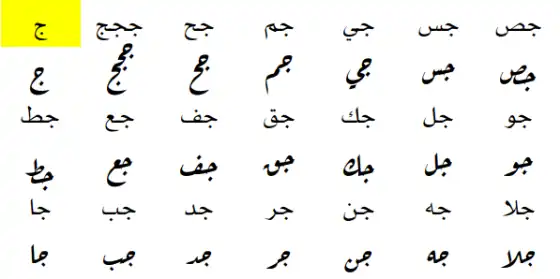 جص جس جي جم جح ججج ج
جص جس جي جم جح ججج ج
جو جل جك جق جف جع جط
جو جل جك جق جف جع جط
جلا جه جن جر جد جب جا
جلا جه جن جر جد جب جا